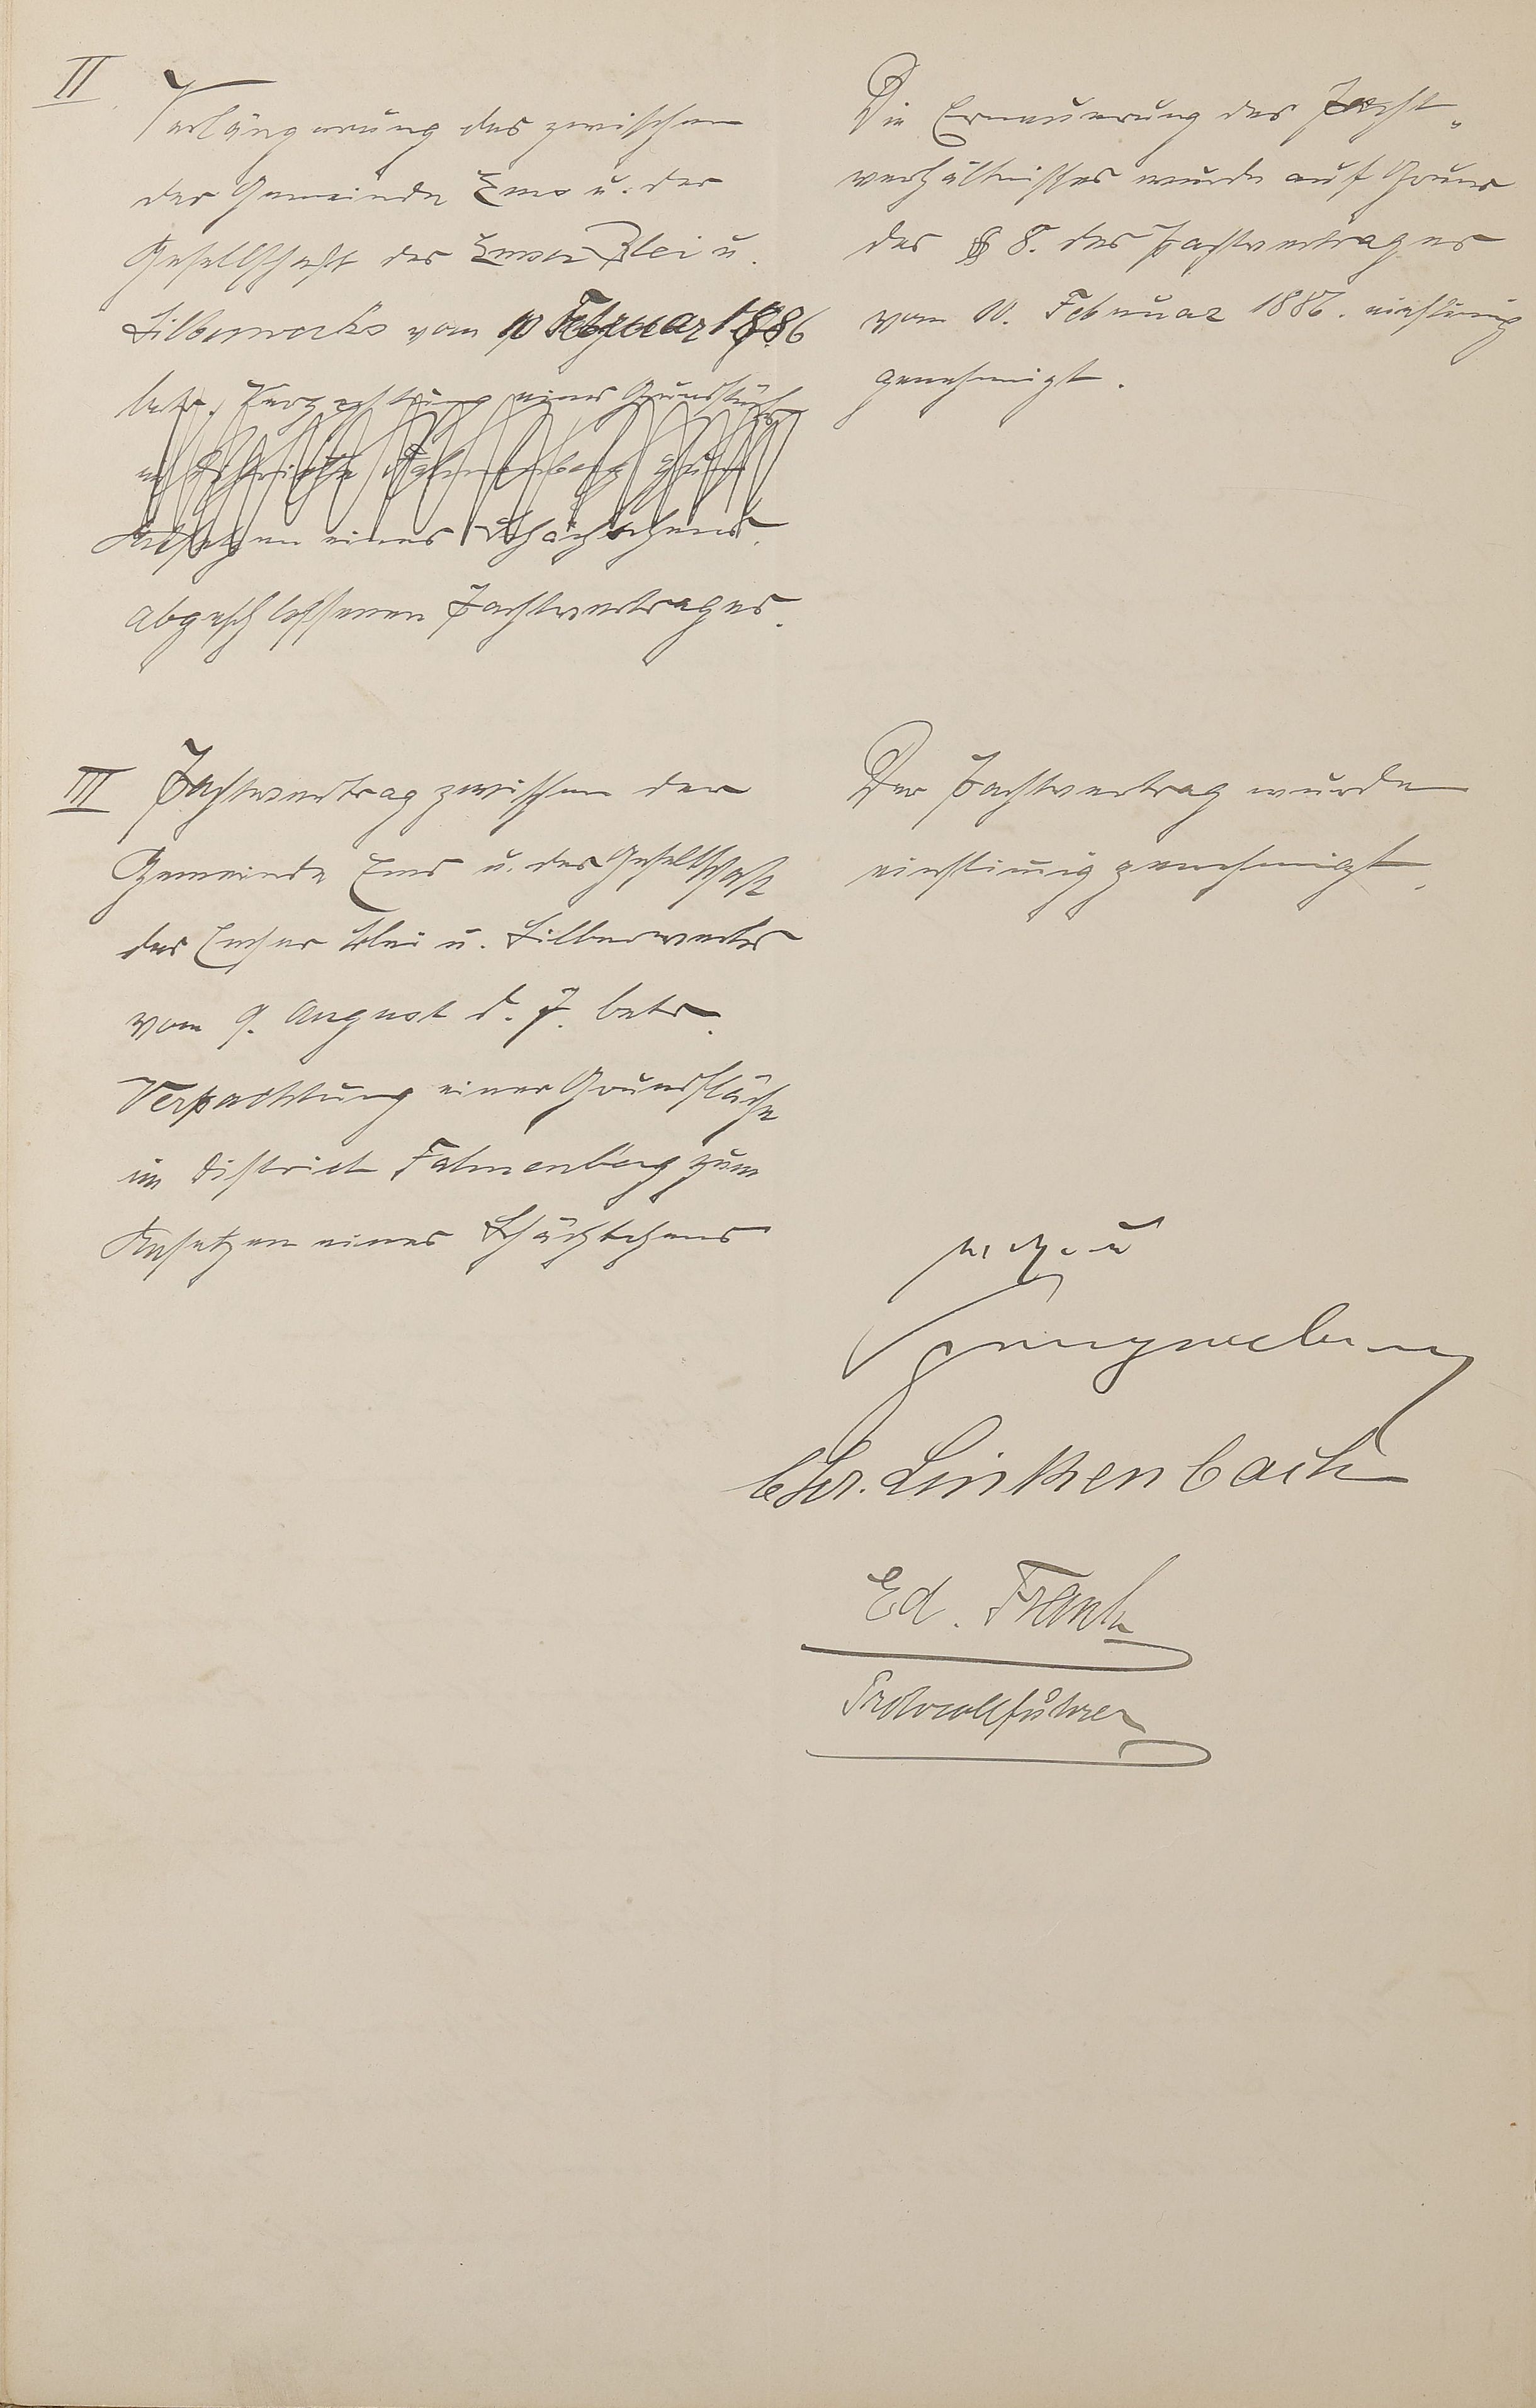 II
Verlängerung des zwischen
der Gemeinde Ems u. der
Gesellschaft des Emser Blei u.
Silberwerks vom 10 Februar 1886
betr. Verpachtung einer Grundfläche
im Distrikte Fahnenberg zum
Ansetzen eines Schächtchens
abgeschlossenen Pachtvertrages.
Die Erneuerung des Pacht„
verhältnisses wurde auf Grund
des § 8. des Pachtvertrages
vom 10. Februar 1886. einstimig
genehmigt.
III Pachtvertrag zwischen der
Gemeinde Ems u. der Gesellschaft
des Emser Blei u. Silberwerks
vom 9. August d. J. betr.
Verpachtung einer Grundfläche
im District Fahnenberg zum
Ansetzen eines Schächtchens
Der Pachtvertrag wurde
einstimig genehmigt.
Chr. Linkenbach
Ed. Frank
Protocollführer